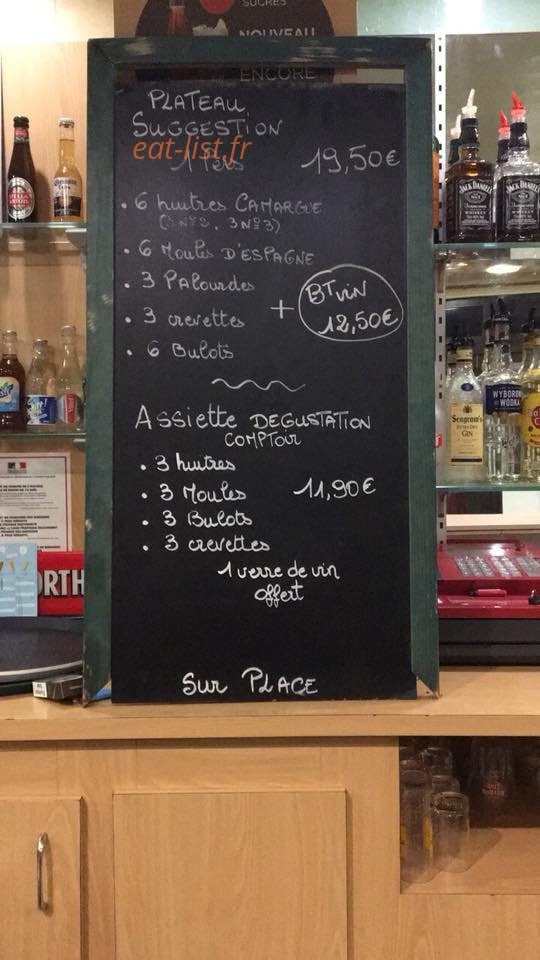 SUCRES
NOUVEAU
ENCORE
PLATEAU
SUGGESTION
eat-list.fr
1 Pers 19,50€
. 6 huitres CAMARGUE
(3 N°2, 3 N°3)
. 6 Moules D'ESPAGNE
. 3 Palourdes
. 3 crevettes
. 6 Bulots
+ BT vin
12,50€
Assiette DEGUSTATION
COMPTOIR
. 3 huitres
. 3 Moules 11,90€
. 3 Bulots
. 3 crevettes
1 verre de vin
offert
Sur PLACE
JACK DANIEL'S
JACK DANIEL'S
Seagram's
GIN
WYBOROWA
WODKA
ORTH